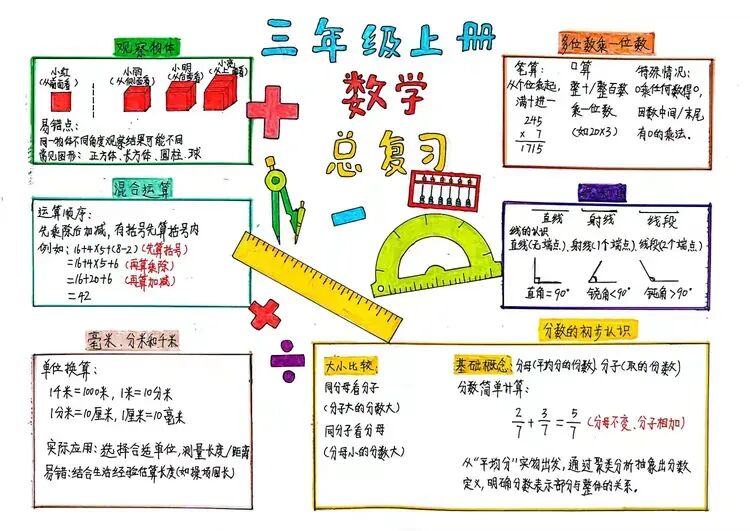 三年级上册
数学
总复习
观察物体
小红 小丽 小明 小亮
(从前面看) (从侧面看) (从右面看) (从上面看)
易错点:
同一物体不同角度观察结果可能不同
常见图形: 正方体、长方体、圆柱、球
混合运算
运算顺序:
先乘除后加减,有括号先算括号内
例如: 16+4×5+(8-2) (先算括号)
=16+4×5+6 (再算乘除)
=16+20+6 (再算加减)
=42
毫米、分米和千米
单位换算:
1千米=1000米, 1米=10分米
1分米=10厘米, 1厘米=10毫米
实际应用: 选择合适单位, 测量长度/距离
易错: 结合生活经验估算长度(如操场周长)
多位数乘一位数
笔算:
从个位乘起,
满十进一
245
× 7
1715
口算
整十/整百数
乘一位数
(如20×3)
特殊情况:
0乘任何数得0,
因数中间/末尾
有0的乘法。
直线 射线 线段
线的认识
直线(无端点) 射线(1个端点) 线段(2个端点)
直角=90° 锐角<90° 钝角>90°
分数的初步认识
大小比较
同分母看分子
(分子大的分数大)
同分子看分母
(分母小的分数大)
基础概念: 分母(平均分的份数) 分子(取的份数)
分数简单计算:
2/7+3/7=5/7 (分母不变、分子相加)
从"平均分"实物出发, 通过聚类分析抽象出分数
定义, 明确分数表示部分与整体的关系。